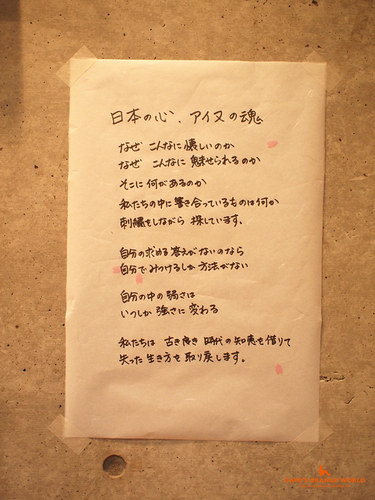 日本の心、アイヌの魂
なぜ こんなに 懐しいのか
なぜ こんなに 魅せられるのか
そこに 何があるのか
私たちの中に 響き合っているものは何か
刺繍をしながら 探しています。
自分の求める答えがないのなら
自分でみつけるしか 方法がない
自分の中の弱さは
いつしか 強さに 変わる
私たちは 古き良き 時代の知恵を借りて
失った生き方を取り戻します。